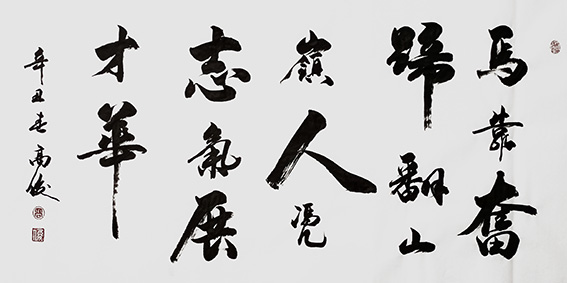 馬靠奮
蹄翻山
嶺人憑
志氣展
才華
辛丑春高俊